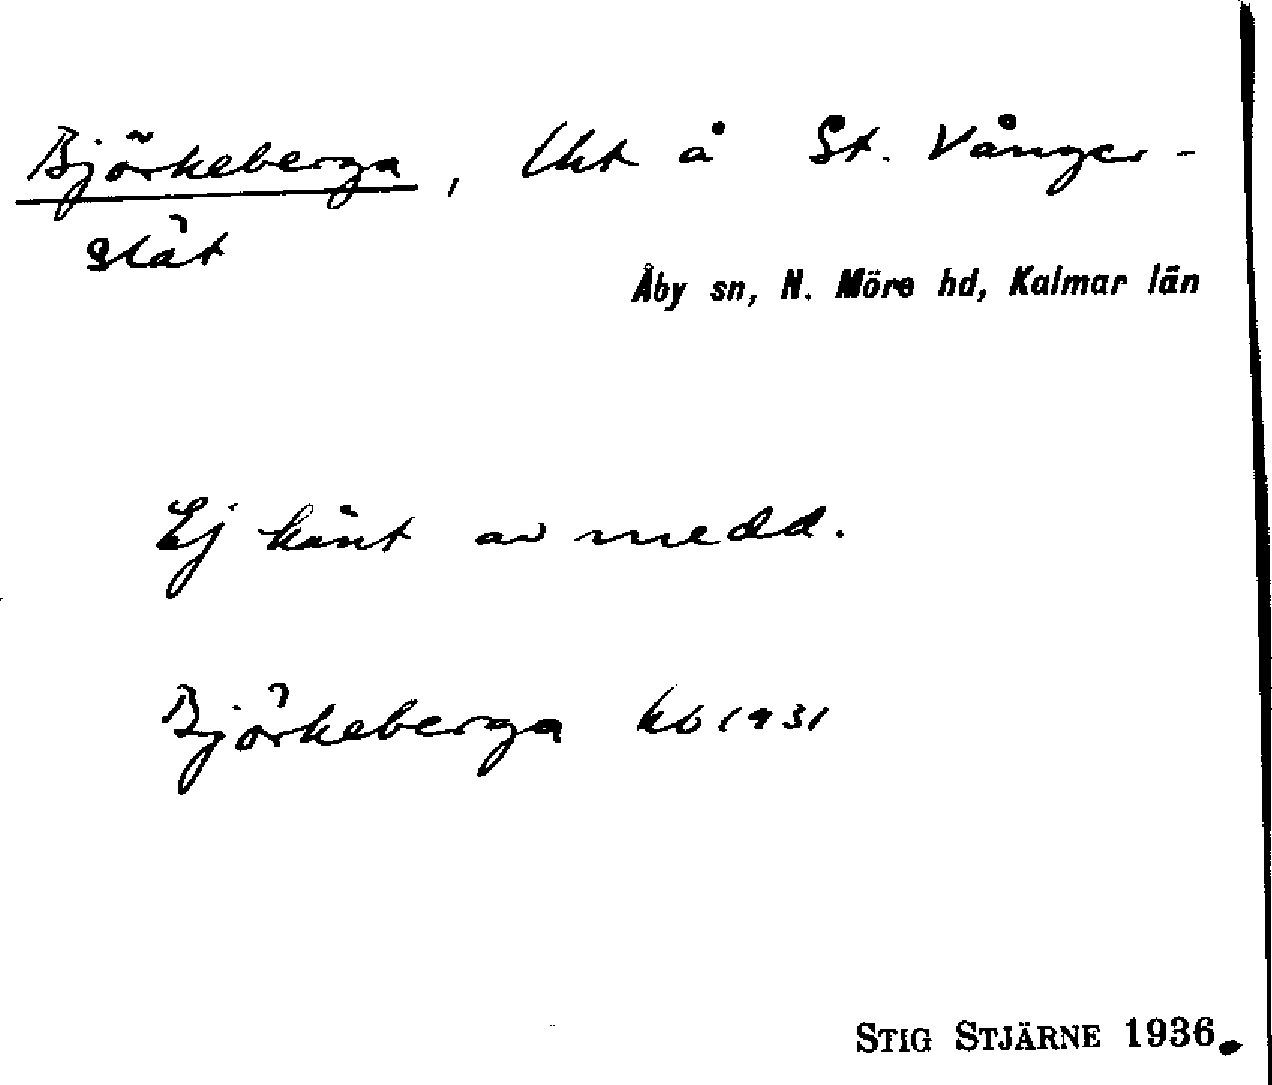 Björkeberga, lht å St. Vånger-
slät
Åby sn, N. Möre hd, Kalmar län
Ej känt av medd.
Björkeberga kb 1931
STIG STJÄRNE 1936.